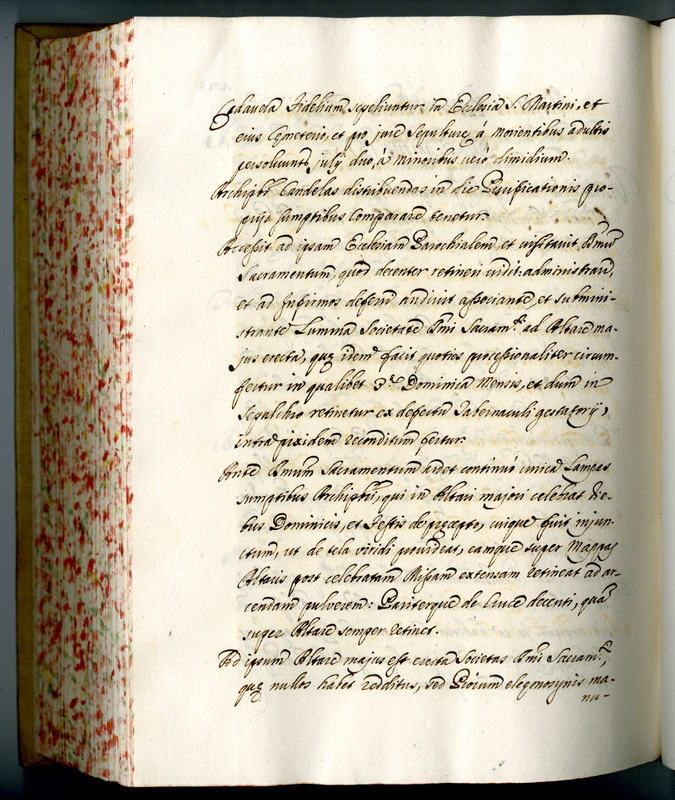 Cadavera Fidelium sepeliuntur in Ecclesia S. Martini, et
eius Cemeterio, et pro jure sepulturę á morientibus adultis
persolvunt julij duo, á minoribus veró dimidium.
Archipbr̃ Candelas distribuendas in die Purificationis pro-
prijs sumptibus comparare tenetur.
Accessit ad ipsam Ecclesiam Parochialem, et visitavit Smũ
Sacramentum, quod decenter retineri vidit: administrari,
et ad Infirmos deferri audivit associante, et submini-
strante Lumina Societate Smi Sacram.ti ad Altare ma-
jus erecta, quę idem facit quoties processionaliter circum-
fertur in qualibet 3.a Dominica Mensis, et dum in
Sepulchro retinetur ex defectu Tabernaculi gestatorij,
intra pixidem reconditum fertur.
Ante Smum Sacramentum ardet continuó unica Lampas
sumptibus Archipbrĩ, qui in Altari majori celebrat Die-
bus Dominicis, et Festis de pręcepto, cuique fuit injun-
ctum, ut de tela viridi provideat, eamque super Mappas
Altaris post celebratam Missam extensam retineat ad ar-
cendam pulverem: Pariterque de Cruce decenti, quã
super Altare semper retinet.
Ad ipsum Altare majus est erecta Societas Smi Sacram.ti,
quę nullos habet redditus, sed Piorum elęemosynis ma-
nu-